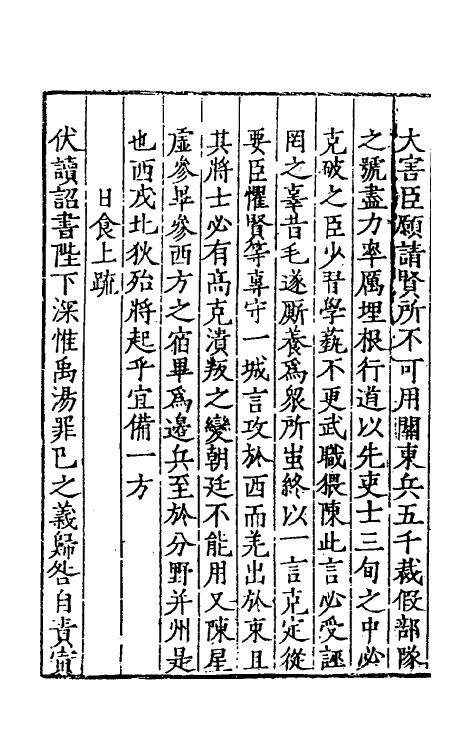 大害臣願請賢所不可用關東兵五千裁假部隊
之號盡力率厲埋根行道以先吏士三旬之中必
克破之臣少習學藝不更武職猥陳此言必受誣
罔之辜昔毛遂厮養爲衆所蚩終以一言克定從
要臣懼賢等專守一城言攻於西而羌出於東且
其將士必有高克潰叛之變朝廷不能用又陳星
孛參畢參西方之宿畢爲邊兵至於分野并州是
也西戎北狄殆將起乎宜備一方
日食上疏
伏讀詔書陛下深惟禹湯罪已之義歸咎自責寅